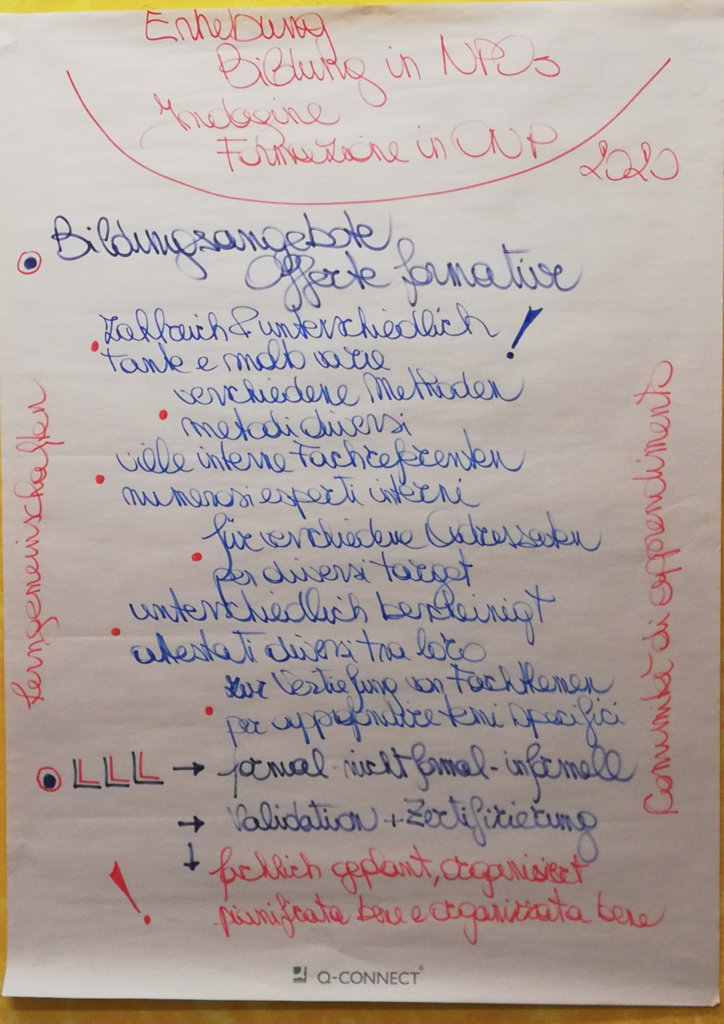 Erhebung
Bildung in NPOs
Indagine
Formazione in ONP
2020
Bildungsangebote
Offerte formative
Zahlreich & unterschiedlich !
tante e molto varie
verschiedene Methoden
metodi diversi
viele interne Fachreferenten
numerosi esperti interni
für verschiedene Adressaten
per diversi target
unterschiedlich bescheinigt
attestati diversi tra loro
zur Vertiefung von Fachthemen
per approfondire temi specifici
LLL → formal - nicht formal - informell
→ Validation + Zertifizierung
↓ fachlich geplant, organisiert
! pianificata bene e organizzata bene
Lerngemeinschaften
Comunità di apprendimento
Q-CONNECT®